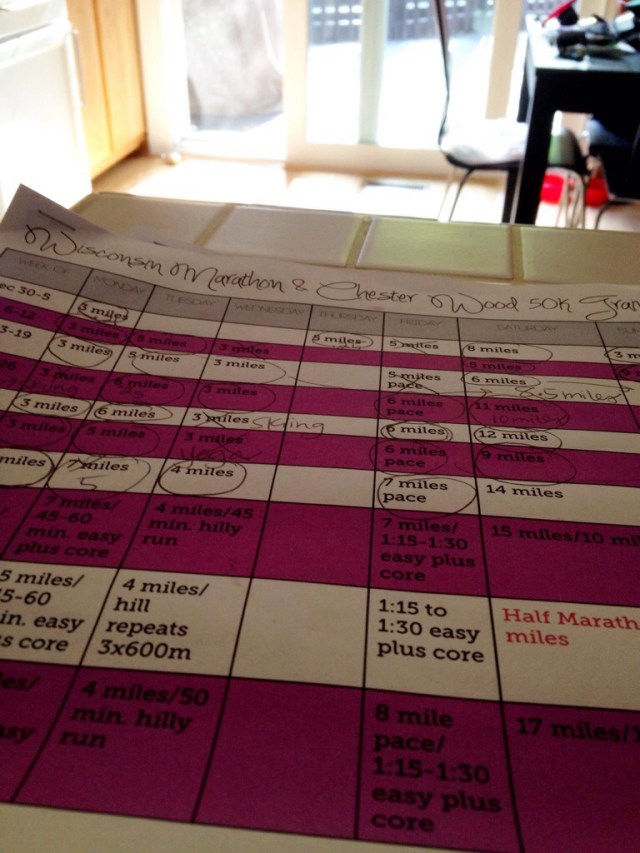 Wisconsin Marathon & Chester Wood 50K
WEEK OF MONDAY TUESDAY WEDNESDAY THURSDAY FRIDAY SATURDAY
ec 30-5 3 miles 5 miles 5 miles 8 miles
6-12 3 miles 5 miles 3 miles 5 miles
3-19 3 miles 5 miles 3 miles 5 miles pace 6 miles 8.5 miles
26 3 miles 6 miles 3 miles 6 miles pace 11 miles 10 miles
3 miles 6 miles 3 miles skiing 6 miles 12 miles
3 miles 5 miles 3 miles 6 miles pace 9 miles
miles 7 miles 5 4 miles 7 miles pace 14 miles
7 miles/
45-60
min. easy
plus core
4 miles/45
min. hilly
run
7 miles/
1:15-1:30
easy plus
core
15 miles/10 mi
5 miles/
5-60
in. easy
s core
4 miles/
hill
repeats
3x600m
1:15 to
1:30 easy
plus core
Half Marath
miles
es/
asy
4 miles/50
min. hilly
run
8 mile
pace/
1:15-1:30
easy plus
core
17 miles/1